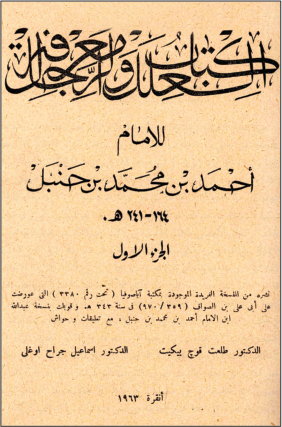 كتاب العلل ومعرفة الرجال
للامام
أحمد بن محمد بن حنبل
١٦٤ - ٢٤١ هـ.
الجزء الاول
نشره من النسخة الفريدة الموجودة بمكتبة آياصوفيا (تحت رقم ٣٣٨٠) التى عورضت
على أبى على بن الصواف (٣٥٩/٩٧٠) فى سنة ٣٤٣ هـ. و قوبلت بنسخة عبدالله
ابن الامام أحمد بن محمد بن حنبل ، مع تعليقات و حواش
الدكتور طلعت قوچ بيكيت الدكتور اسماعيل جراح اوغلى
أنقرة ١٩٦٣